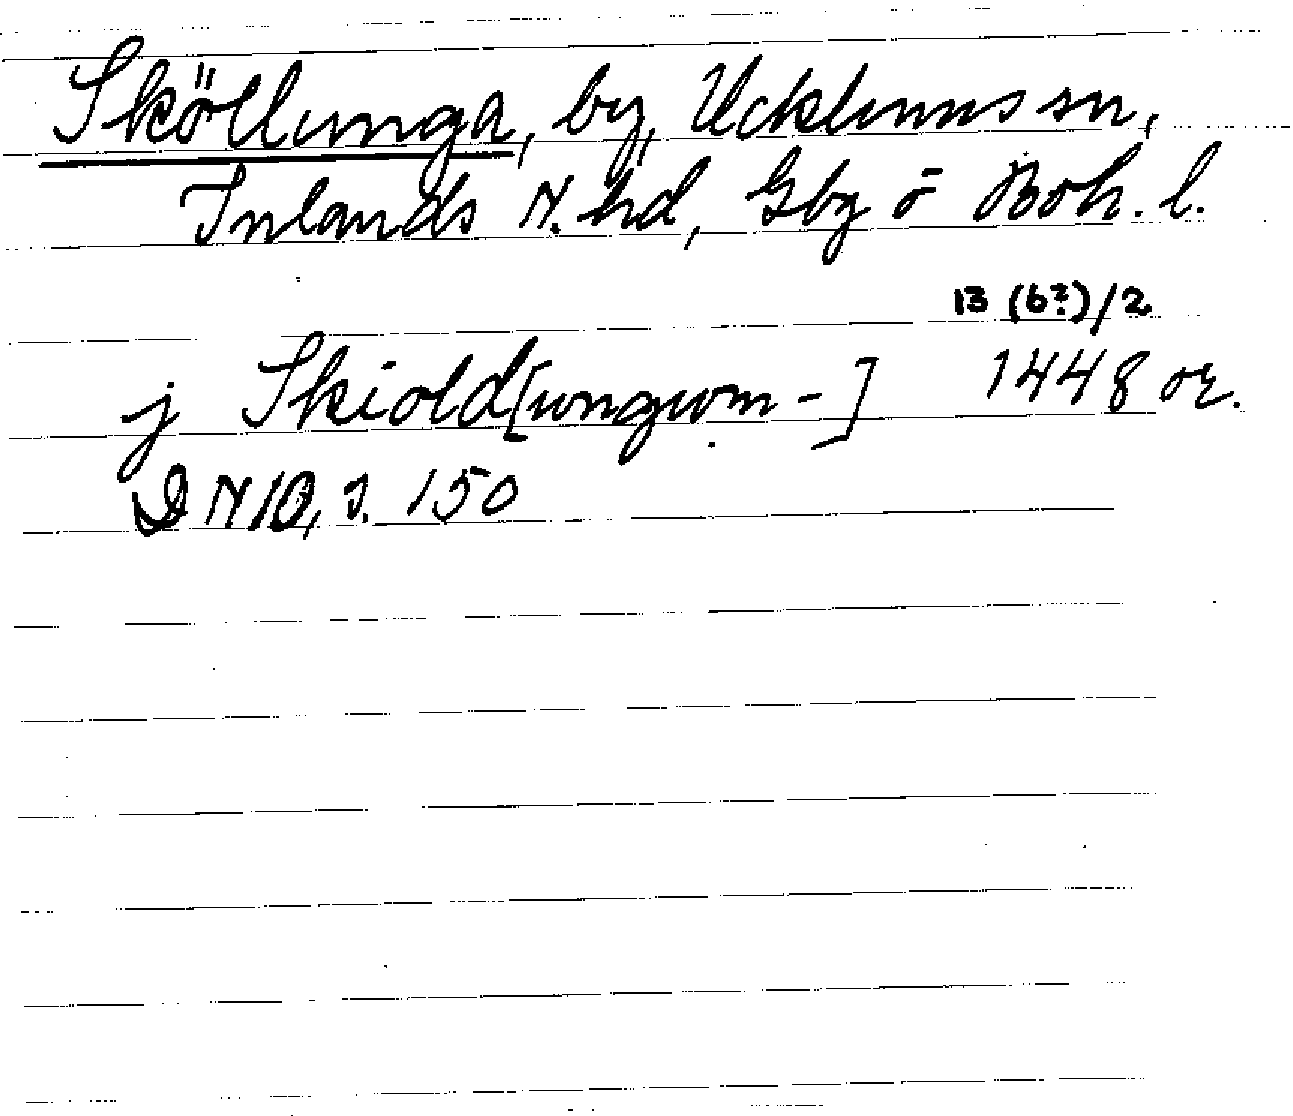 Sköllunga, by, Ucklums sn,
Inlands N. hd, Gbg o Boh. l.
13 (6?)/2
j Skiold[ungwm-] 1448 or.
DN 10, s. 150